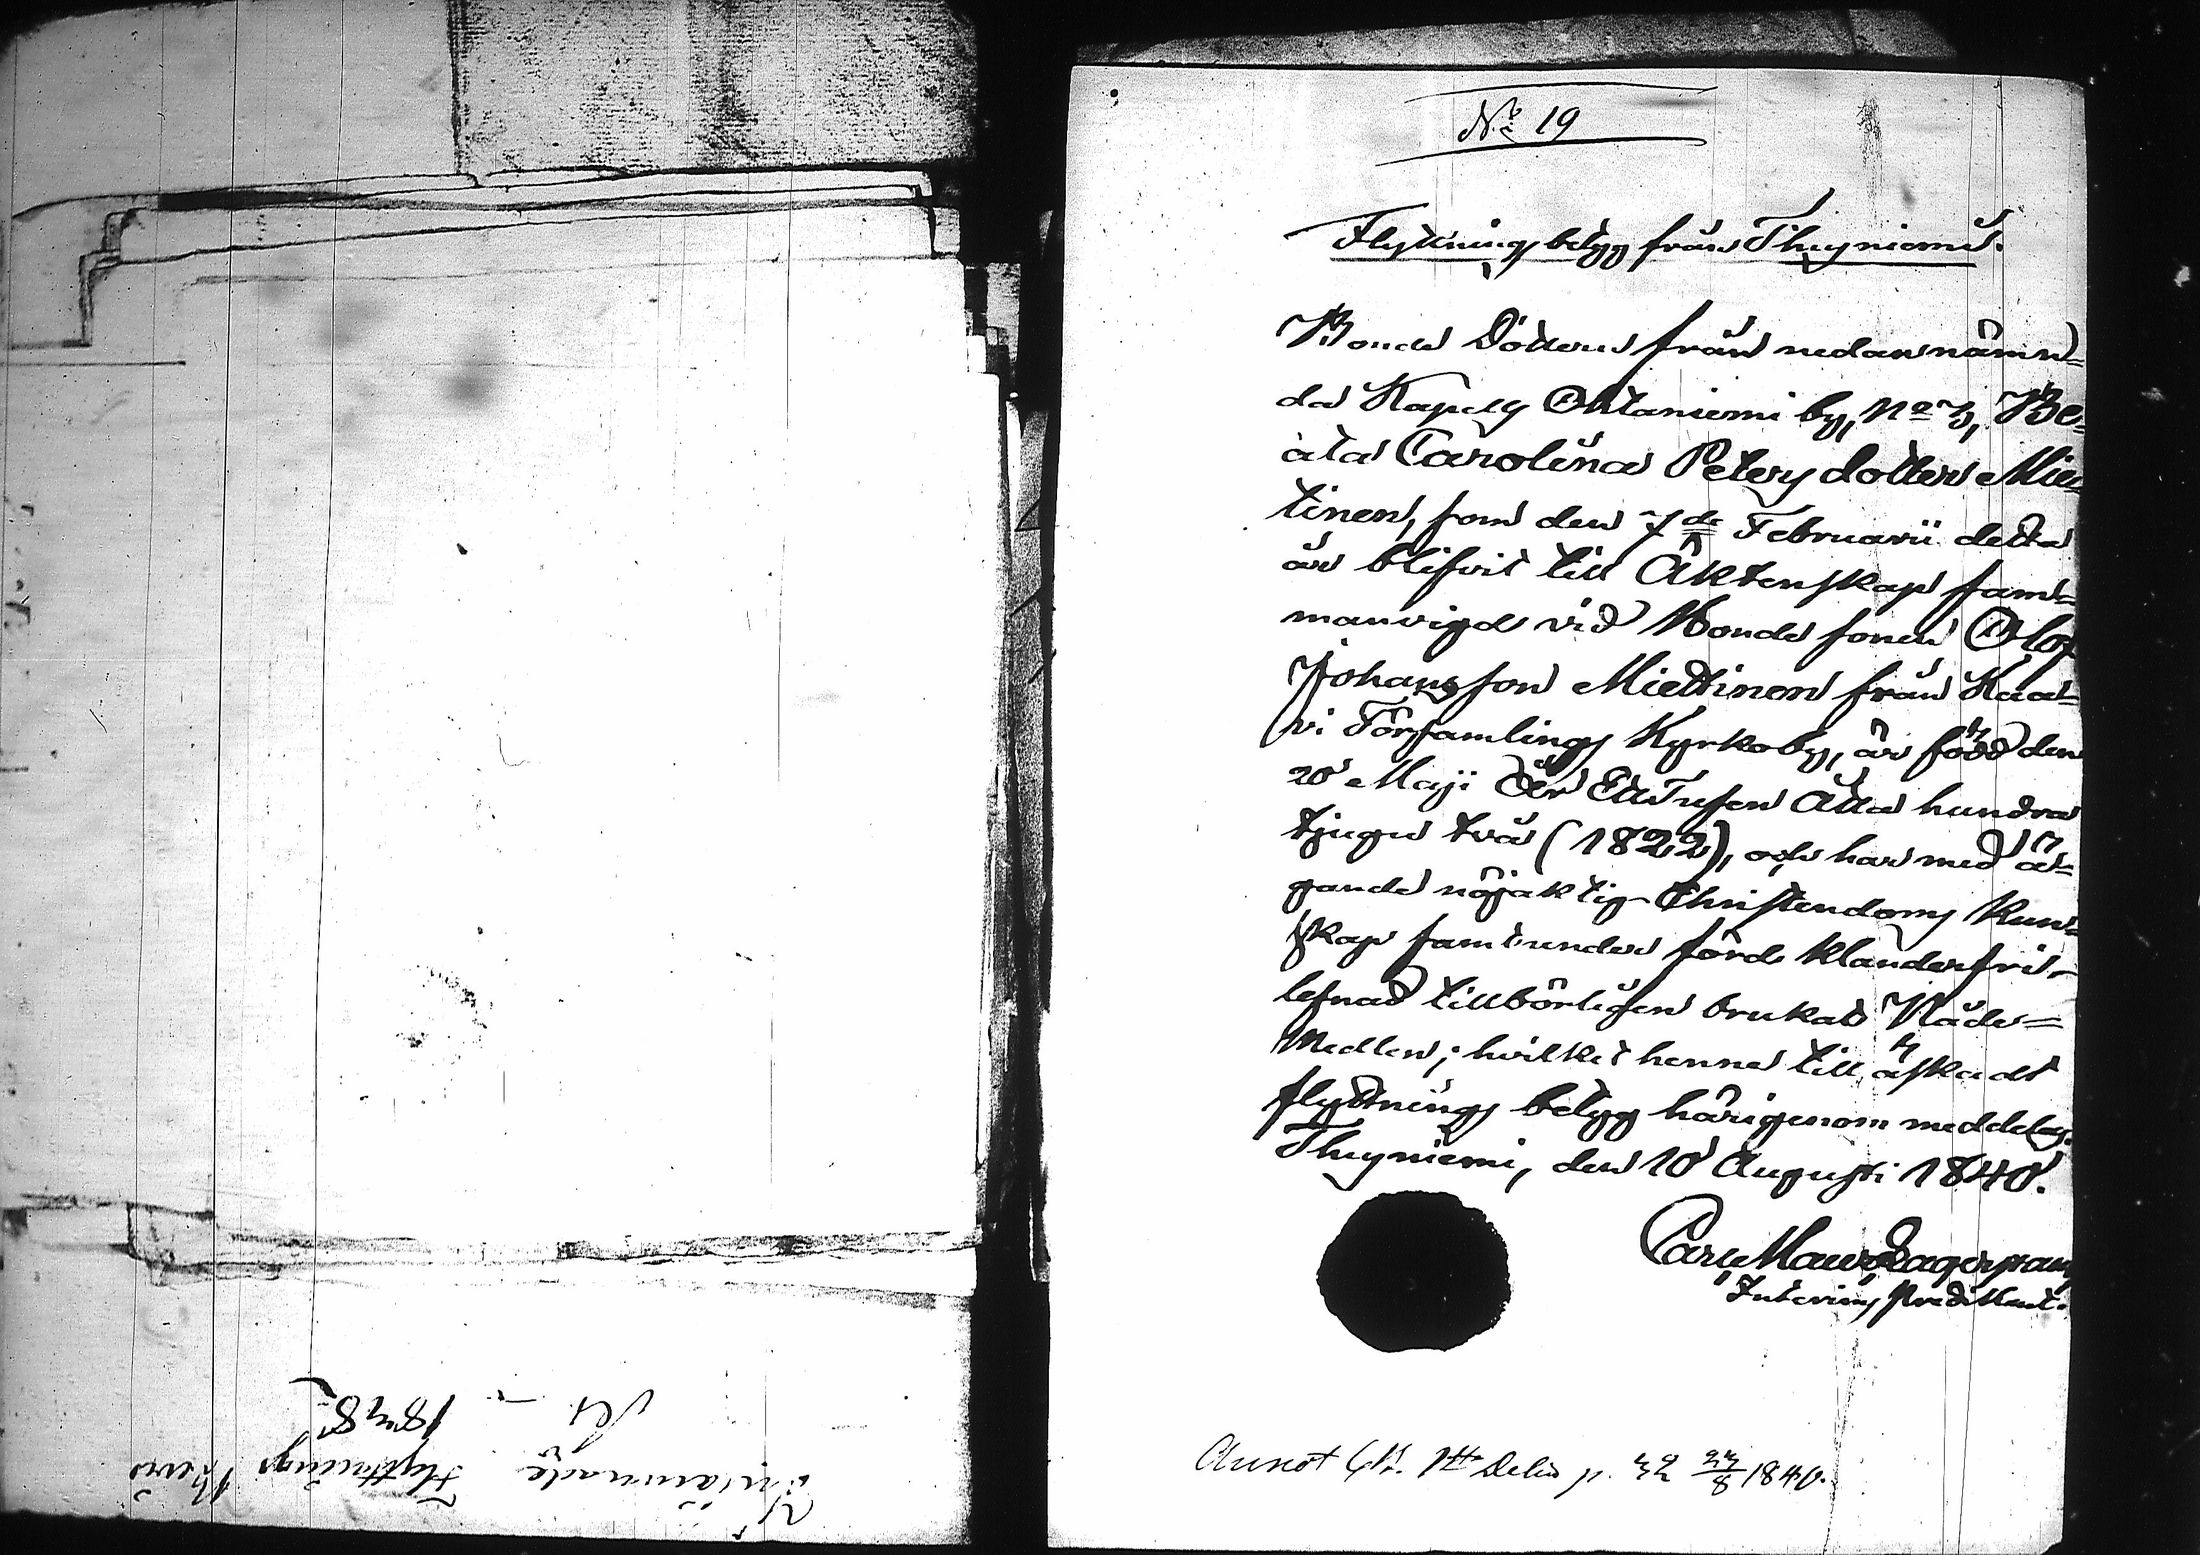 Inlämnade
Flyttnings
Bevis
1848
No 19
Flyttnings betyg från Thuyniemi.
Bonde Dottern från nedannämn=
da Kapels Ohtaniemi by, No 3, Be=
ata Carolina Peters dotter Miet=
tinen, som den 7de Februarii detta
år blifvit till Äktenskap sam=
manvigd vid Bonde sonen Olof
Johansson Miettinen från Kaa=
vi Församlings Kyrkoby, är född den
20 Maji år Ett Tusen Åtta hundra
tjugu två (1822), och har med ä=
gande nöjaktig Christendoms kun=
skap samt under förd klanderfri
lefnad tillbörligen brukat Nåde=
Medlen; hvilket henne till äskadt
flyttnings betyg härigenom meddelas.
Thuyniemi, den 10 Augusti 1840.
Carl Lagerstam
Interims Predikant.
Annot 1sta Delen p. 32 23/8 1840.